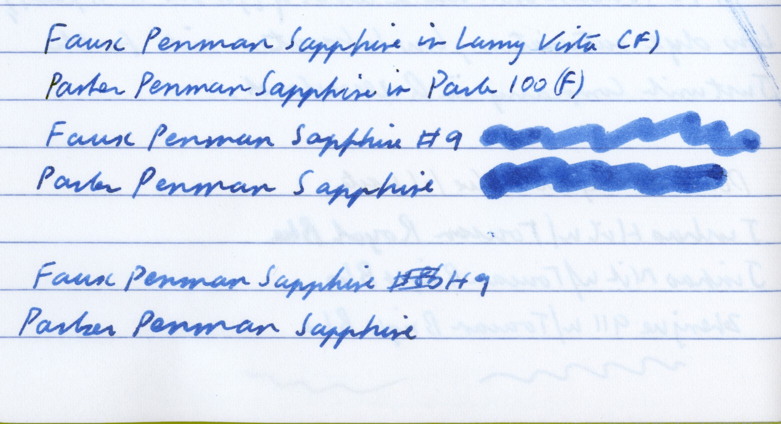 Faux Penman Sapphire in Lamy Vista (F)
Parker Penman Sapphire in Park 100 (F)
Faux Penman Sapphire #9
Parker Penman Sapphire
Faux Penman Sapphire #9
Parker Penman Sapphire